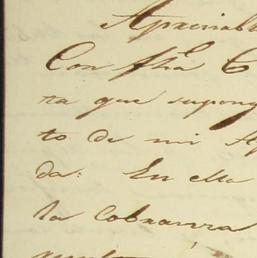 Apreciabl
Con fha
ta que supong
to de mi Ap
da: En ella
la cobranza